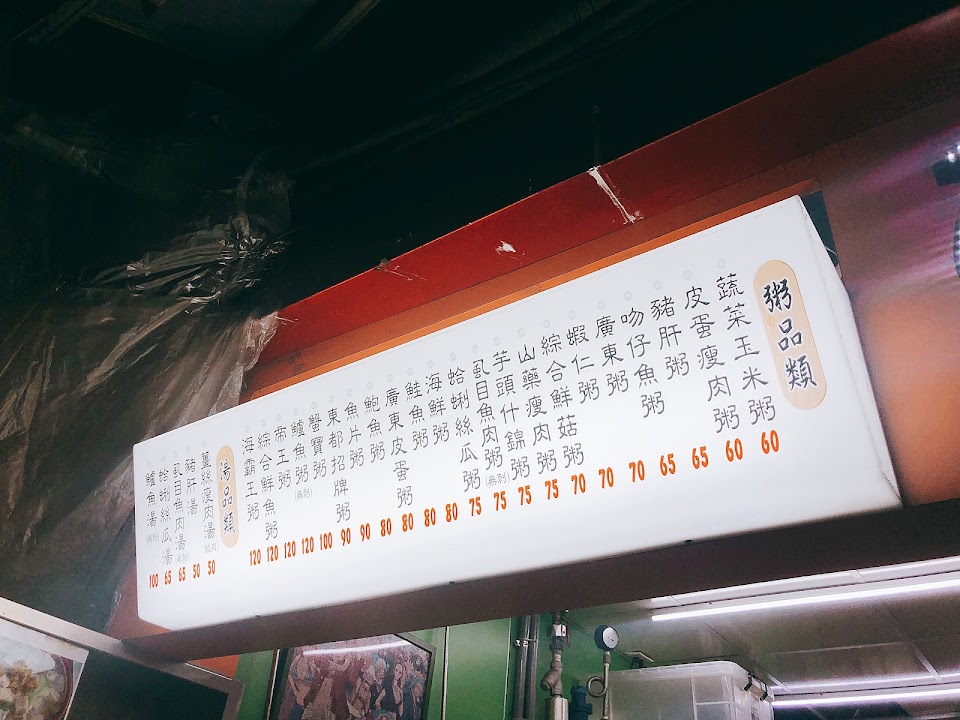 粥品類
蔬菜玉米粥 60
皮蛋瘦肉粥 60
豬肝粥 65
吻仔魚粥 65
廣東粥 70
蝦仁粥 70
綜合鮮菇粥 70
山藥瘦肉粥 75
芋頭什錦粥 75
虱目魚肉粥(無刺) 75
蛤蜊絲瓜粥 75
海鮮粥 80
鮭魚粥 80
廣東皮蛋粥 80
鮑魚粥 80
魚片粥 90
東都招牌粥 90
蟹寶粥 100
鱸魚粥(無刺) 120
帝王粥 120
綜合鮮魚粥 120
海霸王粥 120
湯品類
薑絲瘦肉湯 50
豬肝湯 50
虱目魚肉湯(無刺) 65
蛤蜊絲瓜湯 65
鱸魚湯(無刺) 100